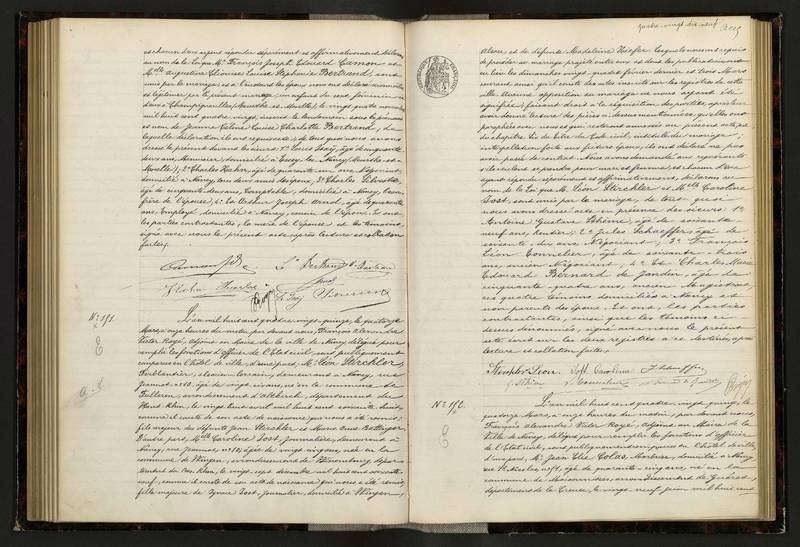 et chacun d'eux ayant répondu séparément et affirmativement, déclarons
au nom de la Loi que Mr. François Joseph Edouard Camon et
Melle Augustine Clémence Louise Stéphanie Bertrand, sont
unis par le mariage; et à l'instant les époux nous ont déclaré reconnaître
et légitimer par le présent mariage, un enfant du sexe féminin
né à Champigneulles (Meurthe et Moselle), le vingt quatre
mil huit cent quatre vingt, inscrit le lendemain sous le prénom
et nom de Jeanne Céline Louise Charlotte Bertrand, de
laquelle déclaration il est requis acte; de tout quoi nous avons
dressé le présent devant les sieurs: 1° Louis Issaÿ, âgé de cinquante
deux ans, Menuisier, domicilié à Essey-les-Nancy, Meurthe et
Moselle); 2° Charles Kacher, âgé de quarante un ans, Négociant,
domicilié à Nancy, tous deux amis des époux; 3° Charles
âgé de cinquante deux ans, Comptable, domicilié à Nancy,
de l'épouse; 4° Arthur Joseph Arnol, âgé de quarante
ans, Employé, domicilié à Nancy, cousin de l'épouse. Et ont
les parties contractantes, la mère de l'épouse et les témoins,
signé avec nous le présent acte après lecture et collation
faites.
N° 151.
L'an mil huit cent quatre vingt quinze, le quatorze
Mars, à onze heures du matin, par devant nous, François Alexandre
Victor Royé, adjoint au Maire de la ville de Nancy délégué pour
remplir les fonctions d'officier de l'État civil, sont publiquement
comparus en l'hôtel de ville, d'une part, Mr. Léon Sterchler,
Ferblantier, alsacien-lorrain, demeurant à Nancy, rue
Jeannot n° 10, âgé de vingt six ans, né en la commune de
Fulleren, arrondissement d'Altkirch, département du
Haut Rhin, le vingt huit avril mil huit cent soixante huit,
comme il conste de son acte de naissance qui nous a été remis;
fils majeur de défunts Jean Sterchler et Marie
D'autre part, Melle Caroline Jost, Journalière, demeurant à
Nancy, rue Jeannot, n° 10, âgée de vingt cinq ans, née en la
commune de Wingen, arrondissement de Wissembourg, dépar-
tement du Bas Rhin, le vingt sept décembre mil huit cent soixante
neuf, comme il conste de son acte de naissance qui nous a été remis;
fille majeure de Jost, Journalier, domicilié à Wingen,
quatre-vingt-dix-neuf
Alsace, et de défunte Madeleine lesquels nous ont requis
de procéder au mariage projeté entre eux et dont les publications ont
eu lieu les dimanches vingt-quatre février dernier et trois Mars
courant, ainsi qu'il conste des actes inscrits sur les registres de cette
ville. Aucune opposition au mariage ne nous ayant été
signifiée; faisant droit à la réquisition des parties, après leur
avoir donné lecture des pièces ci-dessus mentionnées, qu'elles ont
paraphées avec nous et qui resteront annexées au présent acte, et
du chapitre VI du titre du Code civil, intitulé du mariage,
interpellation faite aux futurs époux, ils ont déclaré ne pas
avoir passé de contrat. Nous avons demandé aux comparants
s'ils veulent se prendre pour mari et femme, et chacun d'eux
ayant répondu séparément et affirmativement, déclarons au
nom de la Loi que Mr. Léon Sterchler et Melle Caroline
Jost, sont unis par le mariage, de tout quoi
nous avons dressé acte en présence des sieurs: 1°
Antoine Gustave Thième, âgé de soixante
neuf ans, Rentier; 2° Jules Schaeffer, âgé de
soixante-dix ans, Négociant; 3° François
Léon Connelier, âgé de soixante-trois
ans, ancien Négociant, et 4° Charles Marie
Edouard Bernard de Jandin, âgé de
cinquante-quatre ans, ancien Magistrat,
ces quatre témoins domiciliés à Nancy et
non parents des époux. Et ont les parties
contractantes, ainsi que les témoins ci-
dessus dénommés, signé avec nous le présent
acte écrit sur les deux registres à ce destinés, après
lecture et collation faites.
Léon Jost Caroline
N° 152.
L'an mil huit cent quatre-vingt quinze, le
quatorze Mars, à onze heures du matin, par devant nous,
François Alexandre Victor Royé, adjoint au Maire de la
Ville de Nancy, délégué pour remplir les fonctions d'officier
de l'État civil, sont publiquement comparus en l'hôtel de ville,
d'une part, Mr. Jean Elie Colas, Manœuvre, domicilié à Nancy,
rue St. Nicolas, âgé de quarante-cinq ans, né en la
commune de arrondissement de Guéret,
département de la Creuse, le vingt-neuf juin mil huit cent